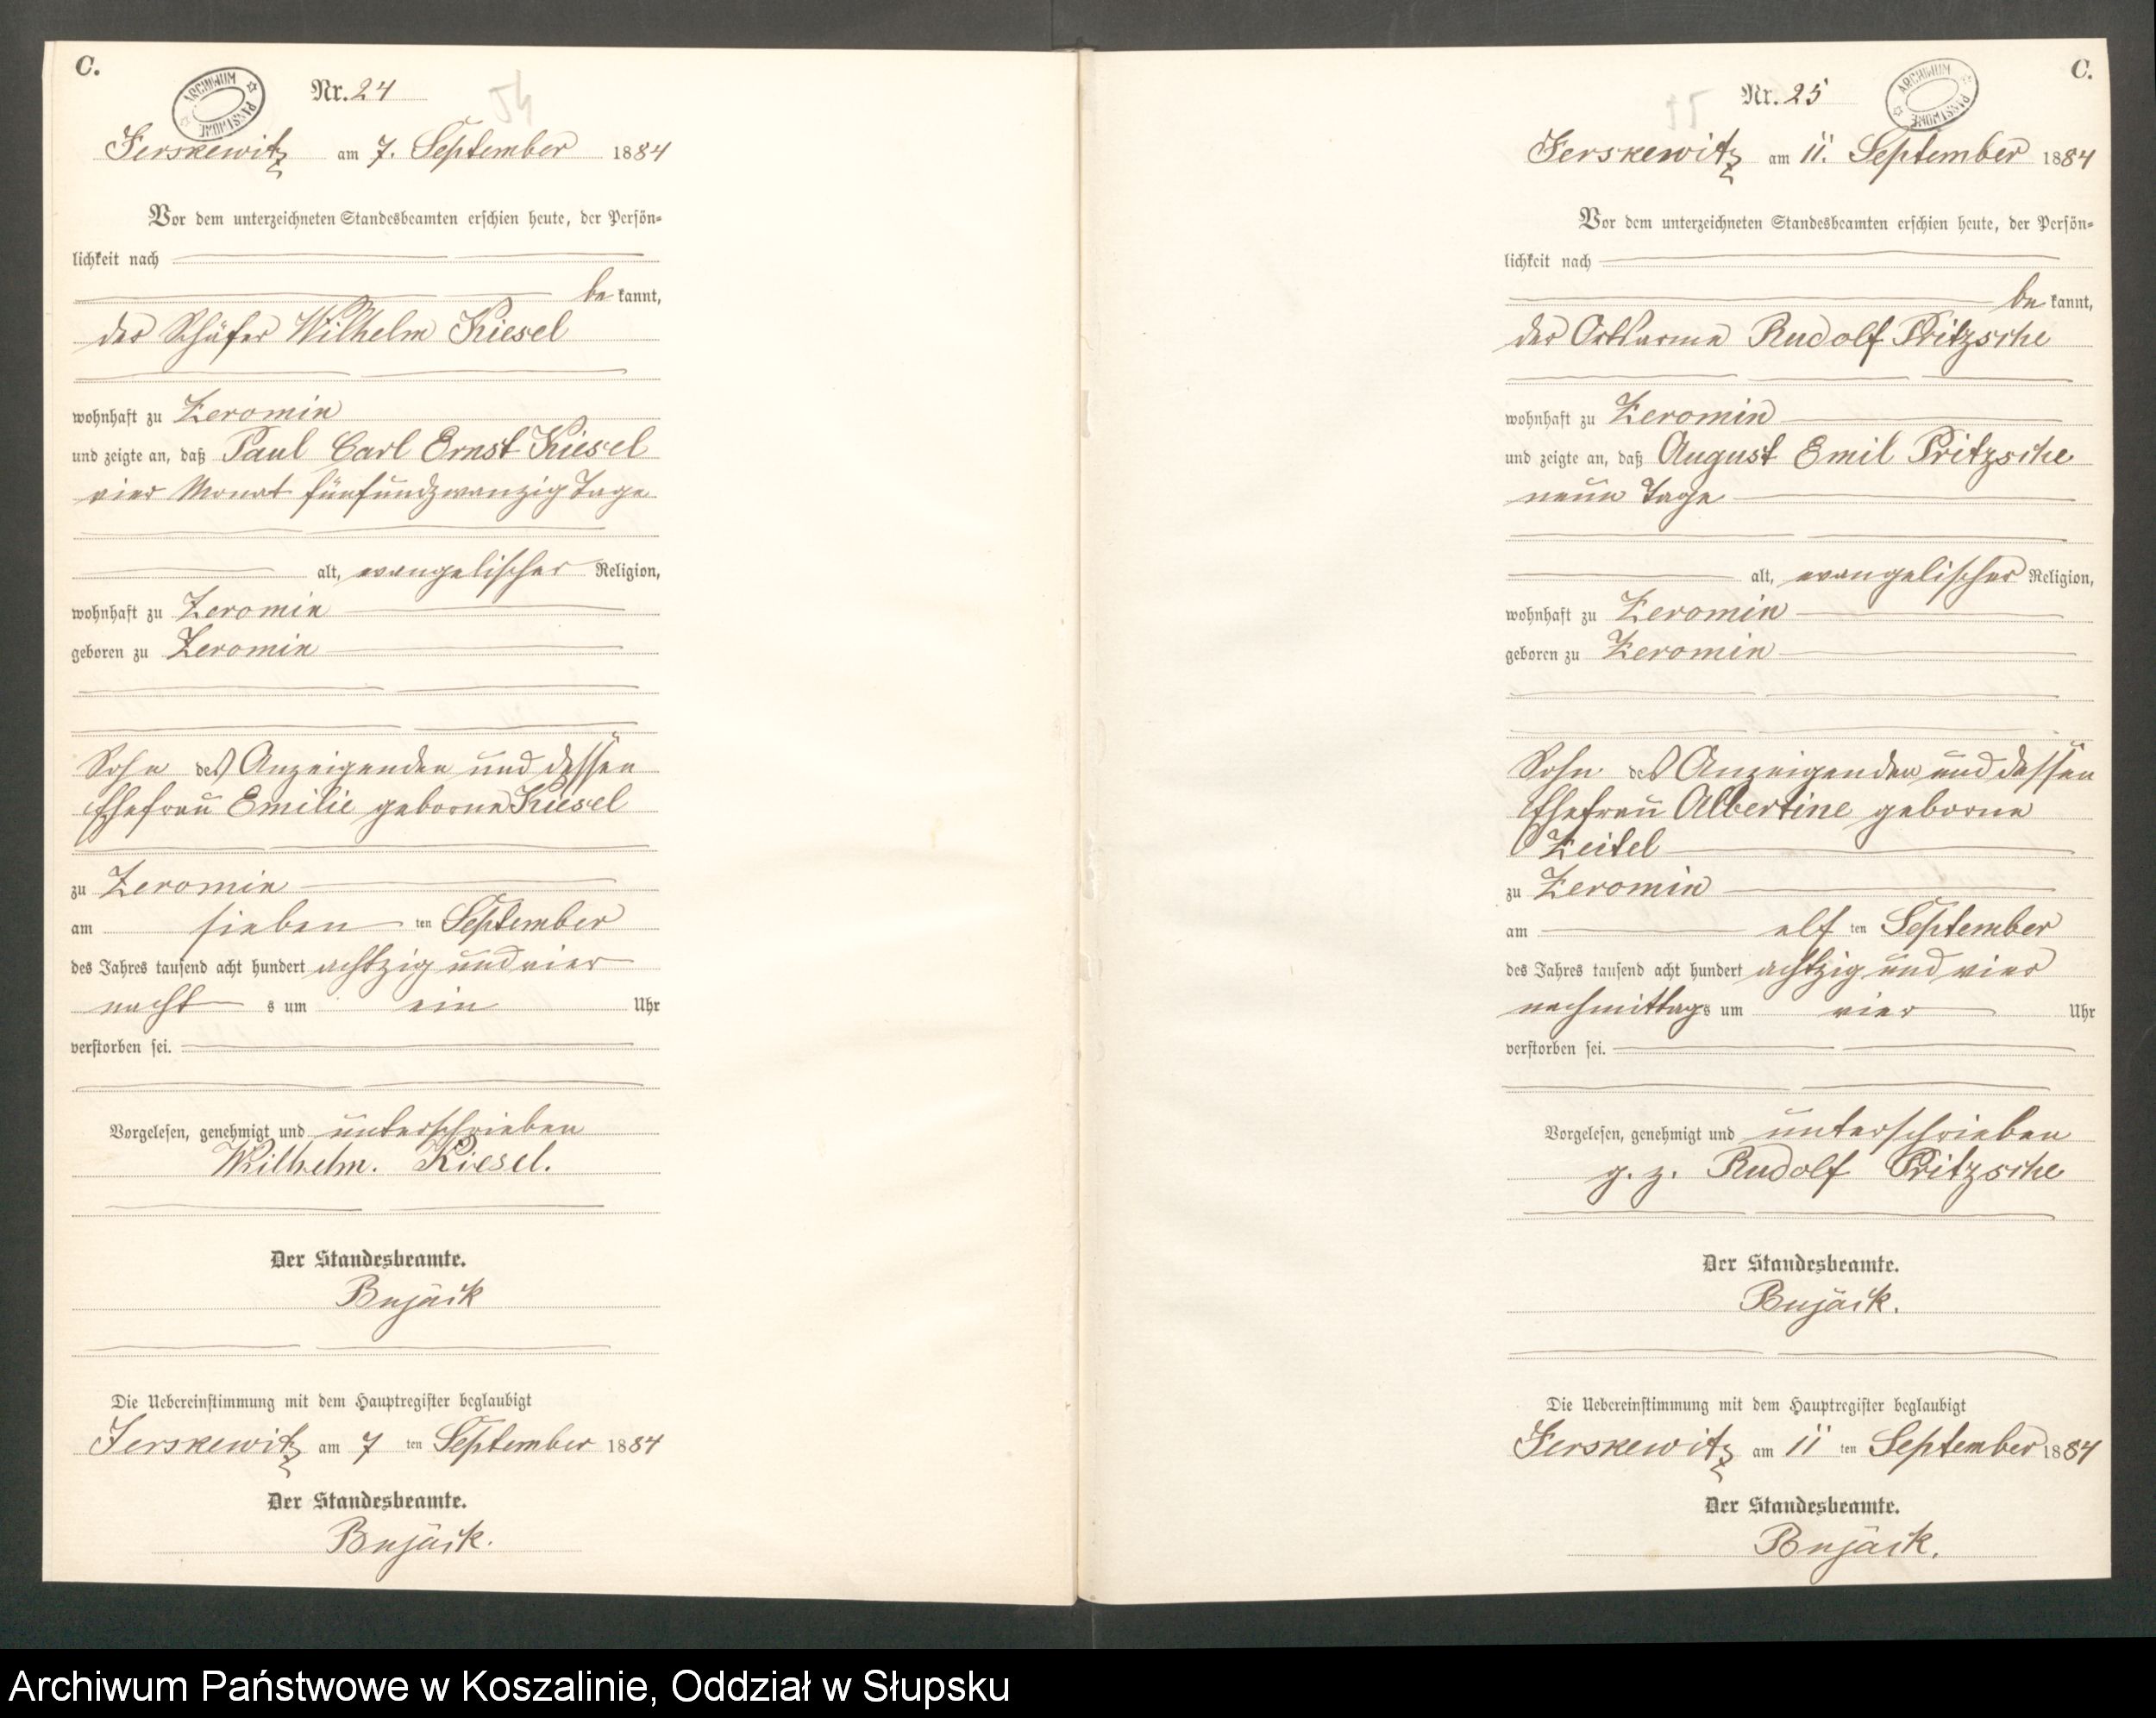 C.
ARCHIWUM PAŃSTWOWE
Nr. 24
54
Jerskewitz am 7. September 1884
Vor dem unterzeichneten Standesbeamten erschien heute, der Persön-
lichkeit nach
be kannt,
der Schäfer Wilhelm Kiesel
wohnhaft zu Zeromin
und zeigte an, daß Paul Carl Ernst Kiesel
vier Monat fünfundzwanzig Tage
alt, evangelischer Religion,
wohnhaft zu Zeromin
geboren zu Zeromin
Sohn des Anzeigenden und dessen
Ehefrau Emilie geborne Kiesel
zu Zeromin
am sieben ten September
des Jahres tausend acht hundert achtzig und vier
nacht s um ein Uhr
verstorben sei.
Vorgelesen, genehmigt und unterschrieben
Wilhelm. Kiesel.
Der Standesbeamte.
Bujäck
Die Uebereinstimmung mit dem Hauptregister beglaubigt
Jerskewitz am 7 ten September 1884
Der Standesbeamte.
Bujäck.
C.
ARCHIWUM PAŃSTWOWE
Nr. 25
55
Jerskewitz am 11. September 1884
Vor dem unterzeichneten Standesbeamten erschien heute, der Persön-
lichkeit nach
be kannt,
der Ortsarme Rudolf Pritzsche
wohnhaft zu Zeromin
und zeigte an, daß August Emil Pritzsche
neun Tage
alt, evangelischer Religion,
wohnhaft zu Zeromin
geboren zu Zeromin
Sohn des Anzeigenden und dessen
Ehefrau Albertine geborne
Zeitel
zu Zeromin
am elf ten September
des Jahres tausend acht hundert achtzig und vier
nachmittags um vier Uhr
verstorben sei.
Vorgelesen, genehmigt und unterschrieben
g. z. Rudolf Pritzsche
Der Standesbeamte.
Bujäck.
Die Uebereinstimmung mit dem Hauptregister beglaubigt
Jerskewitz am 11 ten September 1884
Der Standesbeamte.
Bujäck.
Archiwum Państwowe w Koszalinie, Oddział w Słupsku